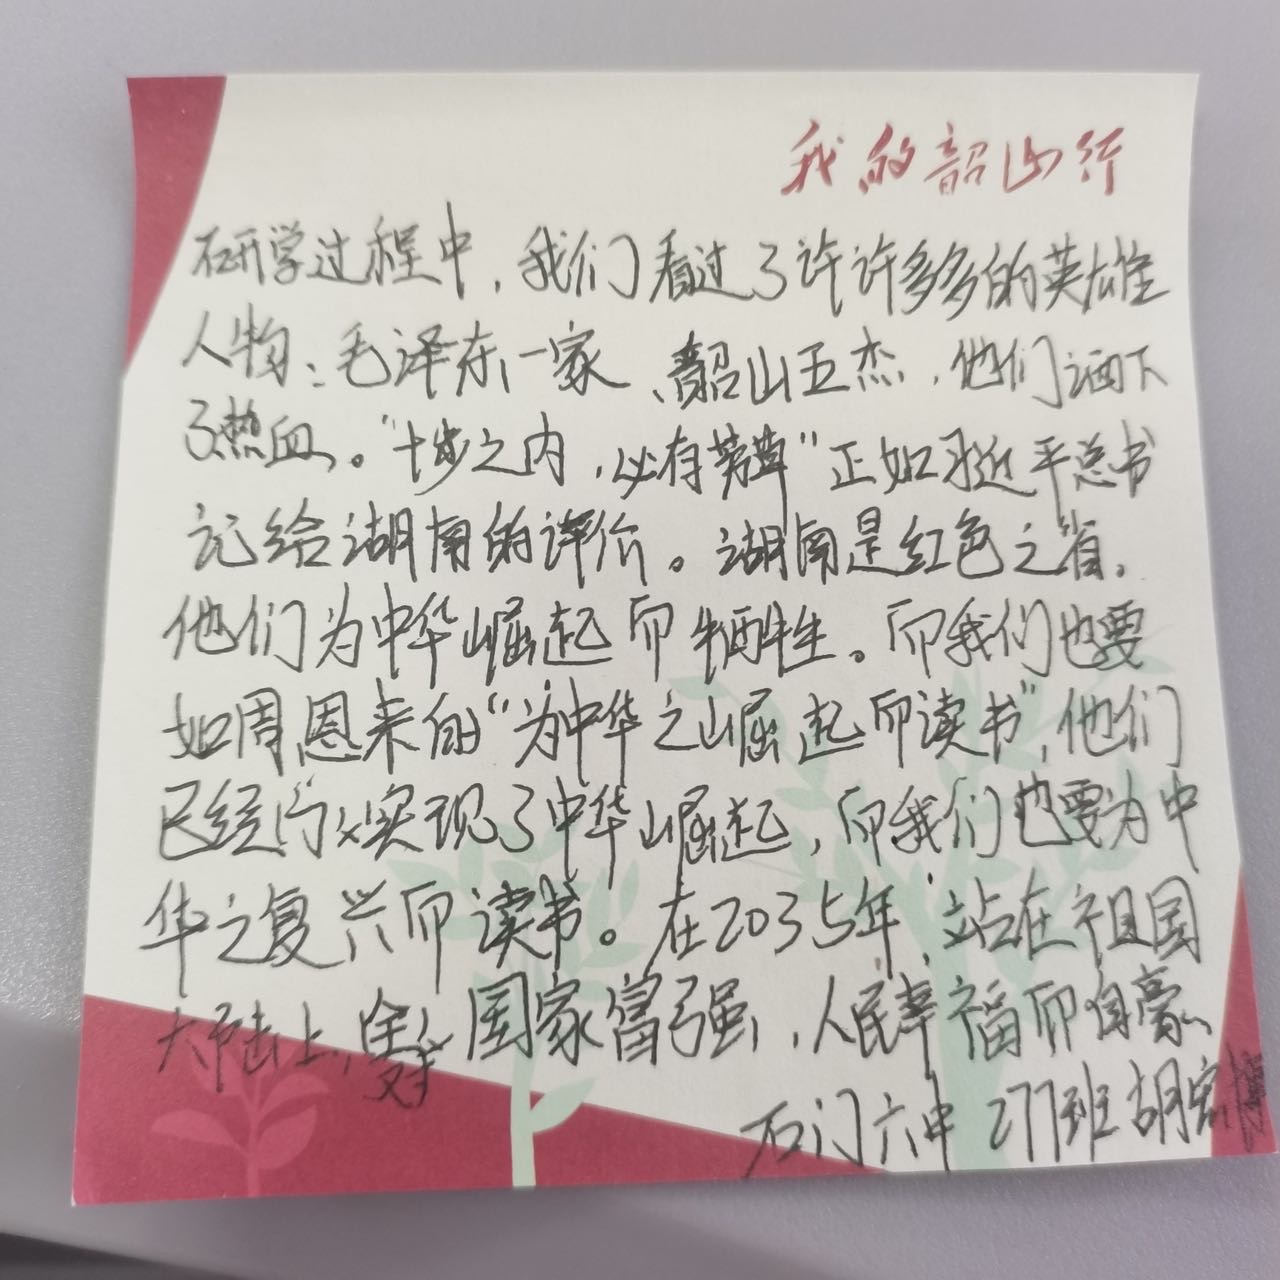 我的韶山行
研学过程中，我们看过了许许多多的英雄
人物：毛泽东一家、韶山五杰，他们洒下
了热血。“十步之内，必有芳草”正如习近平总书
记给湖南的评价。湖南是红色之省，
他们为中华崛起而牺牲。而我们也要
如周恩来的“为中华之崛起而读书”，他们
已经实现了中华崛起，而我们也要为中
华之复兴而读书。在2035年，站在祖国
大陆上，国家富强，人民幸福而自豪。
石门六中 277班 胡宏